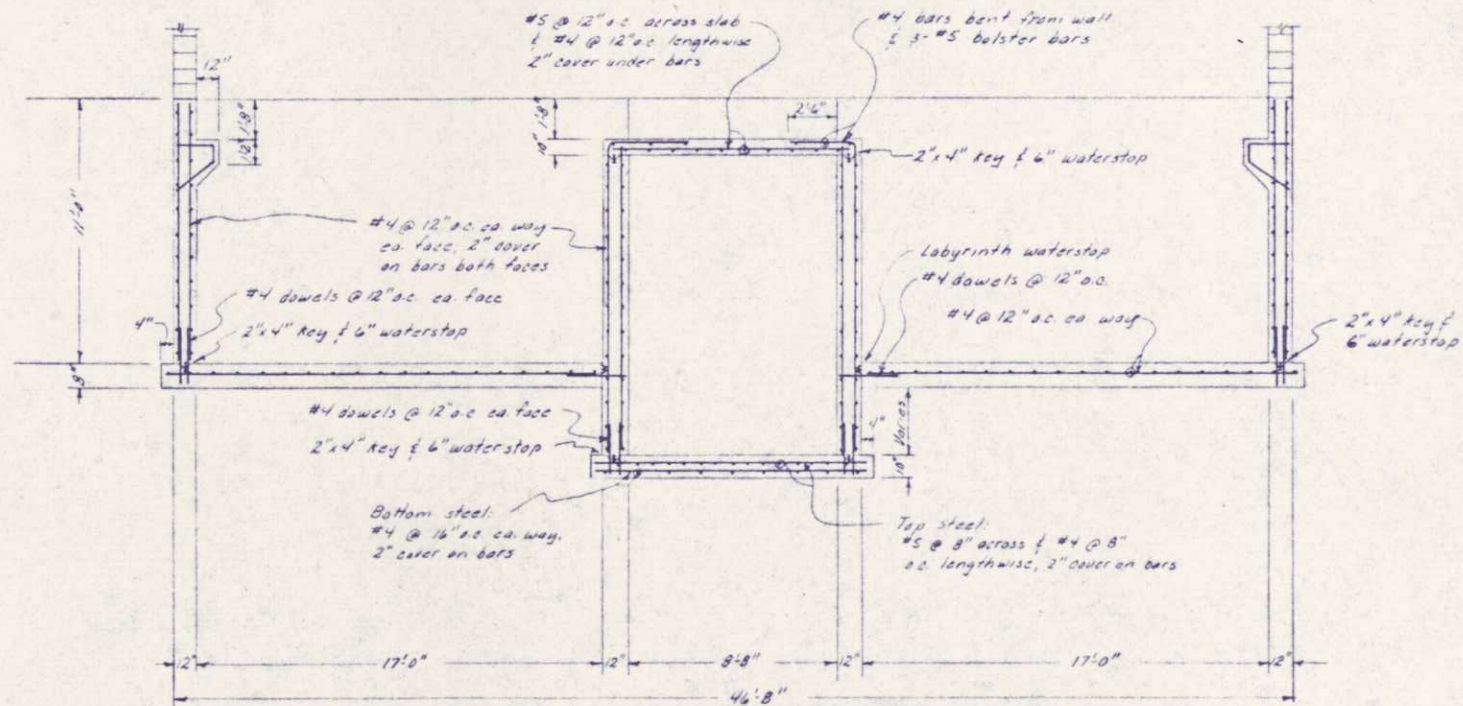 #5 @ 12" o.c. across slab
& #4 @ 12" o.c. lengthwise
2" cover under bars
#4 bars bent from wall
& 3-#5 bolster bars
12"
1'-8"
12"
1'-8"
10"
2'-6"
2"x4" key & 6" waterstop
11'-0"
#4 @ 12" o.c. ea. way
ea. face, 2" cover
on bars both faces
Labyrinth waterstop
#4 dowels @ 12" o.c.
#4 @ 12" o.c. ea. way
#4 dowels @ 12" o.c. ea. face
4"
2"x4" key & 6" waterstop
2"x4" key &
6" waterstop
8"
#4 dowels @ 12" o.c. ea. face
2"x4" key & 6" waterstop
4"
Varies
10"
Bottom steel:
#4 @ 16" o.c. ea. way,
2" cover on bars
Top steel:
#5 @ 8" across & #4 @ 8"
o.c. lengthwise, 2" cover on bars
12"
17'-0"
12"
8'-8"
12"
17'-0"
12"
46'-8"